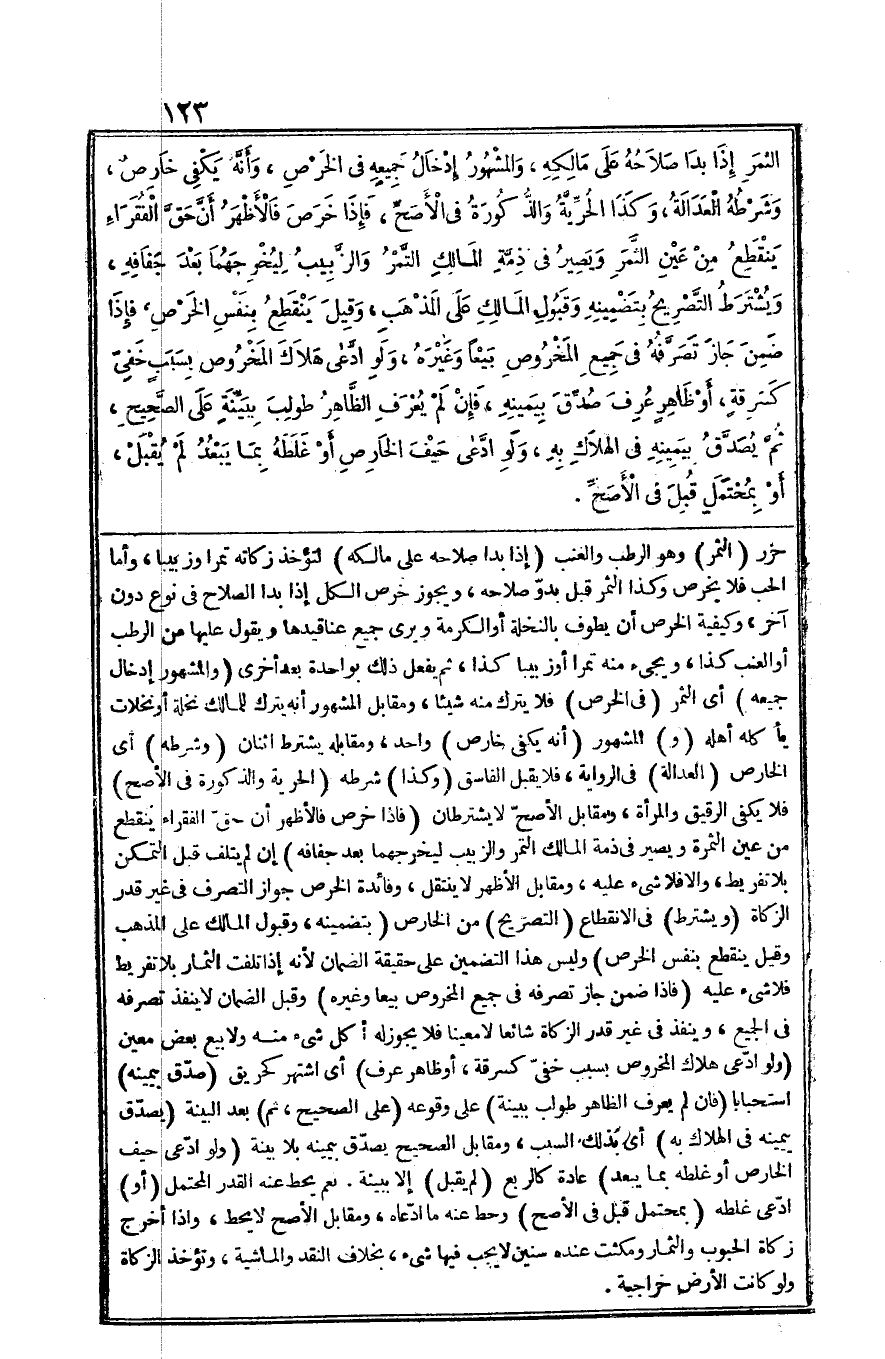 ١٢٣
الثمَرِ إِذَا بدَا صَلَاحُهُ عَلَى مَالِكِهِ ، وَالمَشْهُورُ إِدْخَالُ جَمِيعِهِ فى الخَرْصِ ، وَأَنَّهُ يَكْفِى خَارِصٌ ،
وَشَرْطُهُ الْعَدَالَةُ ، وَكَذَا الحُرِّيَّةُ وَالذُّ كُورَةُ فى الْأَصَحِّ ، فَإِذَا خَرَصَ فَالْأَظْهَرُ أَنَّ حَقَّ الْفُقَرَاءِ
يَنْقَطِعُ مِنْ عَيْنِ الثَّمَرِ وَيَصِيرُ فى ذِمَّةِ المَالِكِ التَّمْرُ وَالزَّبِيبُ لِيُخْرِجَهُمَا بَعْدَ جَفَافِهِ ،
وَيُشْتَرَطُ التَّصْرِيحُ بِتَضْمِينِهِ وَقَبُولِ المَالِكِ عَلَى المَذْهَبِ ، وَقِيلَ يَنْقَطِعُ بِنَفْسِ الخَرْصِ ، فَإِذَا
ضَمِنَ جَازَ تَصَرُّفُهُ فى جَمِيعِ المَخْرُوصِ بَيْعًا وَغَيْرَهُ ، وَلَوِ ادَّعَى هَلَاكَ المَخْرُوصِ بِسَبَبٍ خَفِىٍّ
كَسَرِقَةٍ ، أَوْ ظَاهِرٍ عُرِفَ صُدِّقَ بِيَمِينِهِ ، فَإِنْ لَمْ يُعْرَفِ الظَّاهِرُ طُولِبَ بِبَيِّنَةٍ عَلَى الصَّحِيحِ ،
ثُمَّ يُصَدَّقُ بِيَمِينِهِ فى الهَلَاكِ بِهِ ، وَلَوِ ادَّعَى حَيْفَ الخَارِصِ أَوْ غَلَطَهُ بِمَا يَبْعُدُ لَمْ يُقْبَلْ ،
أَوْ بِمُحْتَمَلٍ قُبِلَ فى الْأَصَحِّ .
حزر (الثمر) وهو الرطب والعنب (إذا بدا صلاحه على مالكه) لتؤخذ زكاته تمرا وزبيبا ، وأما
الحب فلا يخرص وكذا الثمر قبل بدوّ صلاحه ، ويجوز خرص الكل إذا بدا الصلاح فى نوع دون
آخر ، وكيفية الخرص أن يطوف بالنخلة أو الكرمة ويرى جميع عناقيدها ويقول عليها من الرطب
أو العنب كذا ، ويجىء منه تمرا أو زبيبا كذا ، ثم يفعل ذلك بواحدة بعد أخرى (والمشهور إدخال
جميعه) أى الثمر (فى الخرص) فلا يترك منه شيئا ، ومقابل المشهور أنه يترك للمالك نخلة أو نخلات
يأكله أهله (و) المشهور (أنه يكفى خارص) واحد ، ومقابله يشترط اثنان (وشرطه) أى
الخارص (العدالة) فى الرواية ، فلا يقبل الفاسق (وكذا) شرطه (الحرية والذكورة فى الأصح)
فلا يكفى الرقيق والمرأة ، ومقابل الأصحّ لا يشترطان (فاذا خرص فالأظهر أن حق الفقراء ينقطع
من عين الثمرة ويصير فى ذمة المالك التمر والزبيب ليخرجهما بعد جفافه) إن لم يتلف قبل التمكن
بلا تفريط ، والا فلا شىء عليه ، ومقابل الأظهر لا ينتقل ، وفائدة الخرص جواز التصرف فى غير قدر
الزكاة (ويشترط) فى الانقطاع (التصريح) من الخارص (بتضمينه ، وقبول المالك على المذهب
وقيل ينقطع بنفس الخرص) وليس هذا التضمين على حقيقة الضمان لأنه إذا تلفت الثمار بلا تفريط
فلا شىء عليه (فاذا ضمن جاز تصرفه فى جميع المخروص بيعا وغيره) وقبل الضمان لا ينفذ تصرفه
فى الجميع ، وينفذ فى غير قدر الزكاة شائعا لا معينا فلا يجوز له أكل شىء منه ولا بيع بعض معين
(ولو ادّعى هلاك المخروص بسبب خفىّ كسرقة ، أو ظاهر عرف) أى اشتهر كحريق (صدّق بيمينه)
استحبابا (فان لم يعرف الظاهر طولب ببينة) على وقوعه (على الصحيح ، ثم) بعد البينة (يصدّق
بيمينه فى الهلاك به) أى بذلك السبب ، ومقابل الصحيح يصدّق بيمينه بلا بينة (ولو ادّعى حيف
الخارص أو غلطه بما يبعد) عادة كالربع (لم يقبل) إلا ببينة . نعم يحط عنه القدر المحتمل (أو)
ادّعى غلطه (بمحتمل قبل فى الأصح) وحط عنه ما ادّعاه ، ومقابل الأصح لا يحط ، واذا أخرج
زكاة الحبوب والثمار ومكثت عنده سنين لا يجب فيها شىء ، بخلاف النقد والماشية ، وتؤخذ الزكاة
ولو كانت الأرض خراجية .